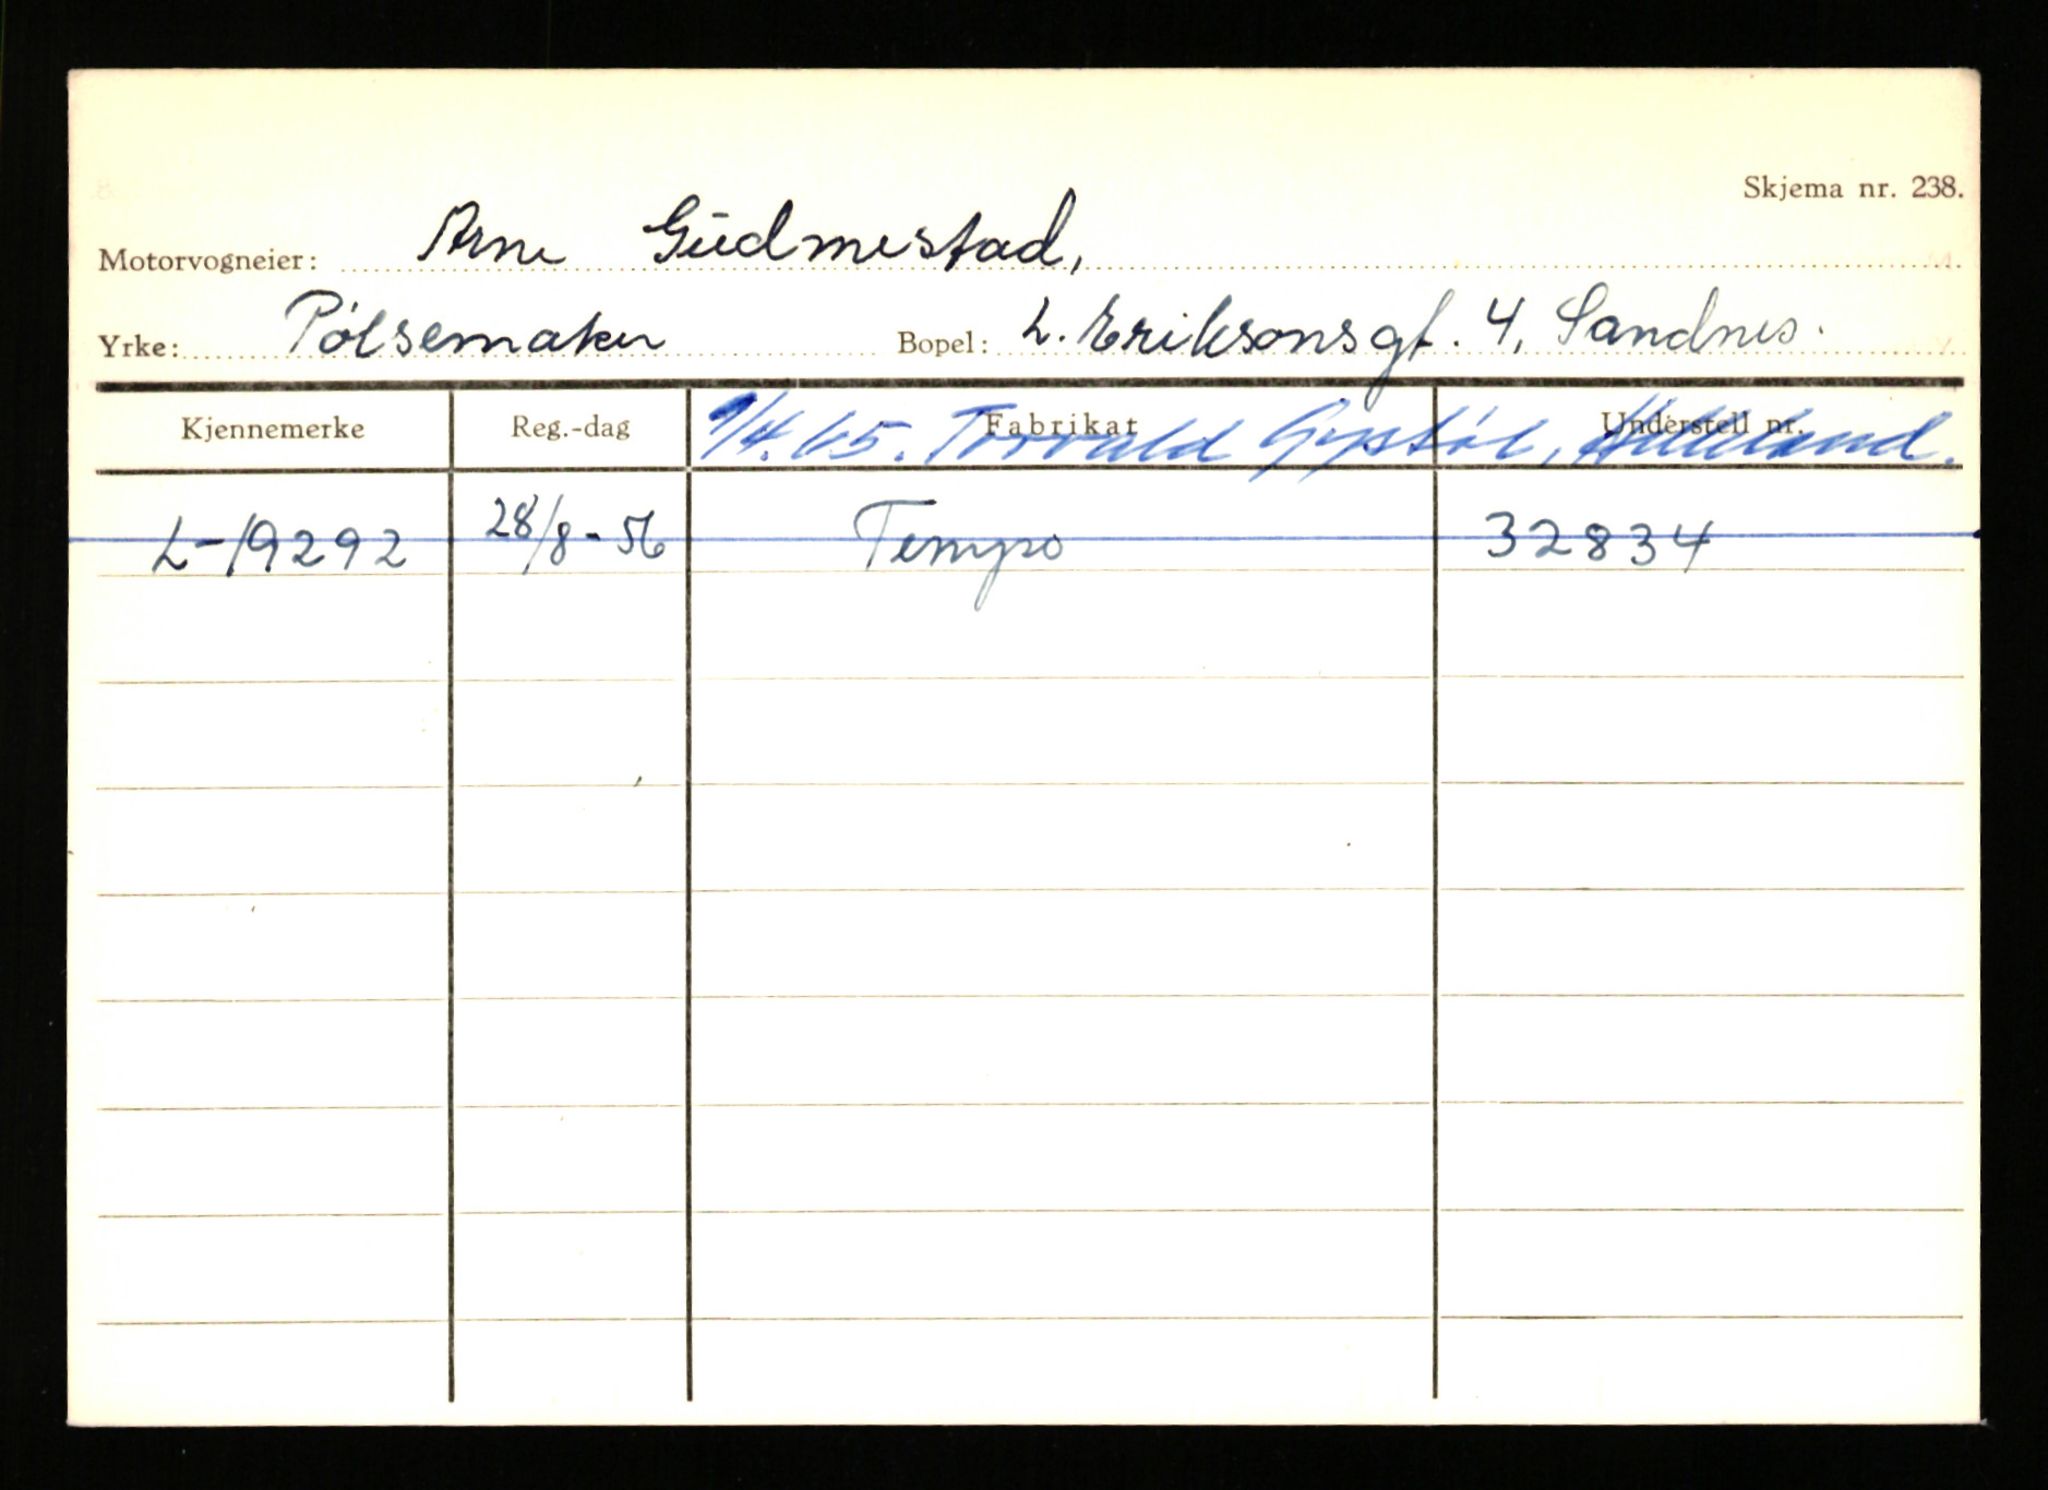 Skjema nr. 238.
Motorvogneier: Arne Gudmestad,
Yrke: Pølsemaker Bopel: L. Eriksonsgt. 4, Sandnes.
Kjennemerke Reg.-dag Fabrikat Understell nr.
9/4.65. Torvald Gystøl, Helleland.
L-19292 28/8-56 Tempo 32834